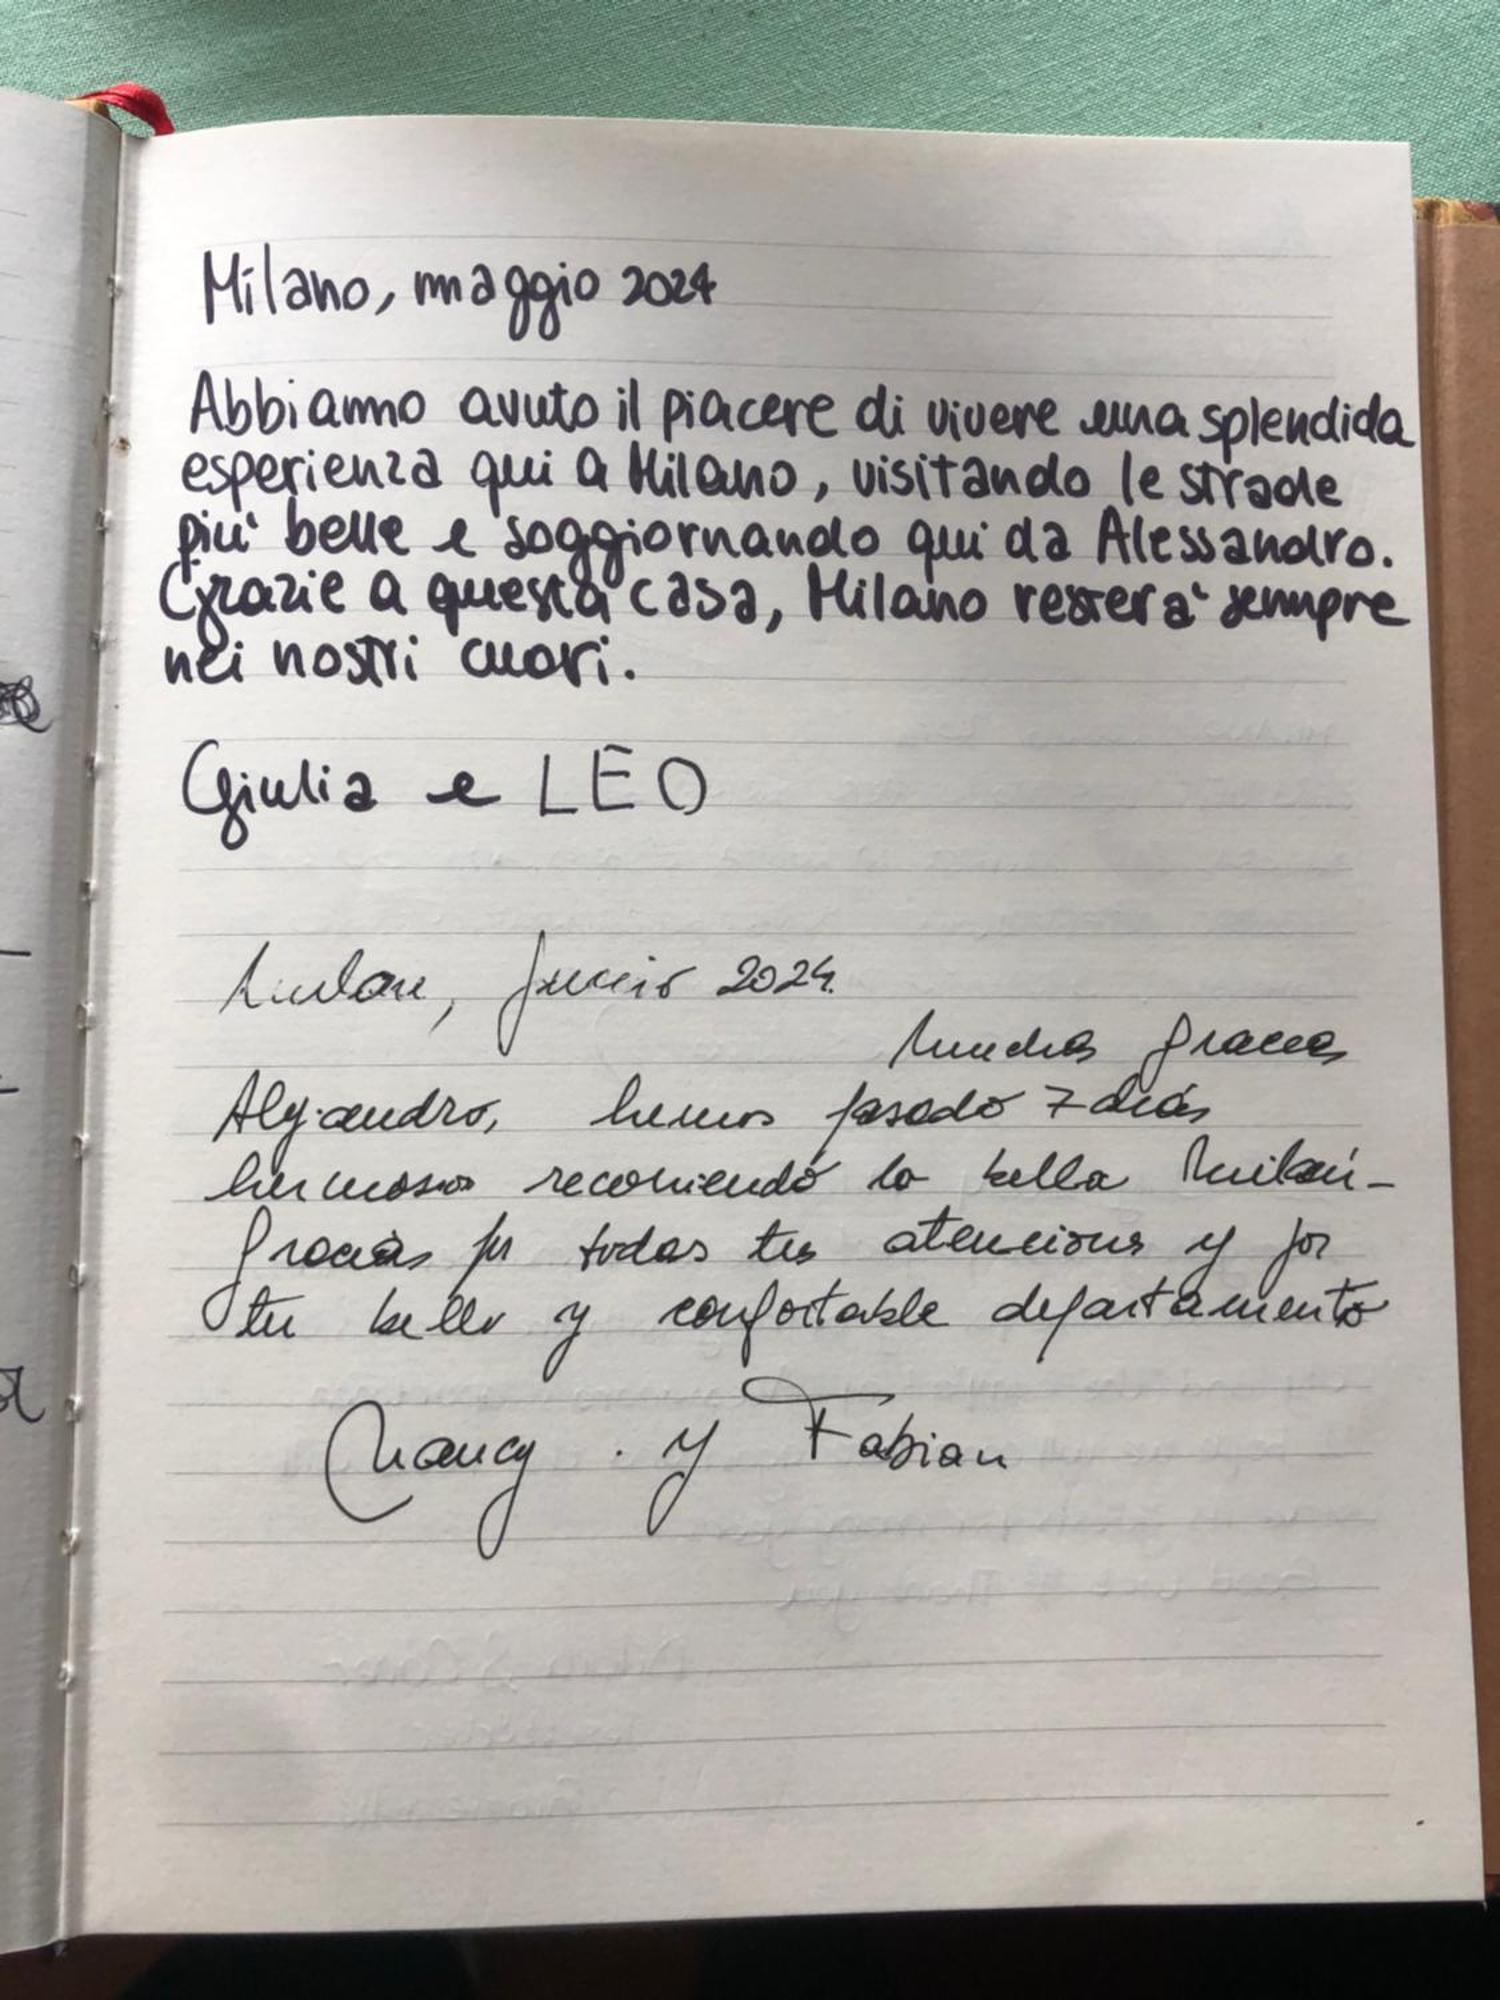 Milano, maggio 2024
Abbiamo avuto il piacere di vivere una splendida
esperienza qui a Milano, visitando le strade
più belle e soggiornando qui da Alessandro.
Grazie a questa casa, Milano resterà sempre
nei nostri cuori.
Giulia e LEO
Milan, Junio 2024.
Muchas gracias
Alejandro, hemos pasado 7 días
hermosos recorriendo la bella Milán-
Gracias por todas tus atenciones y por
tu bello y confortable departamento
Nancy . y Fabian